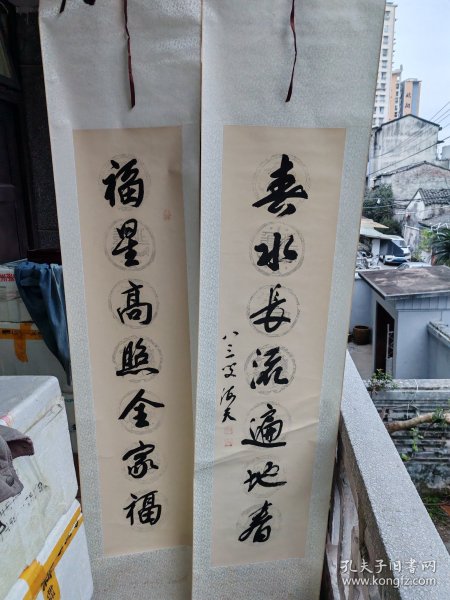 春水長流遍地春
八三叟
福星高照全家福
孔夫子旧书网
www.kongfz.com